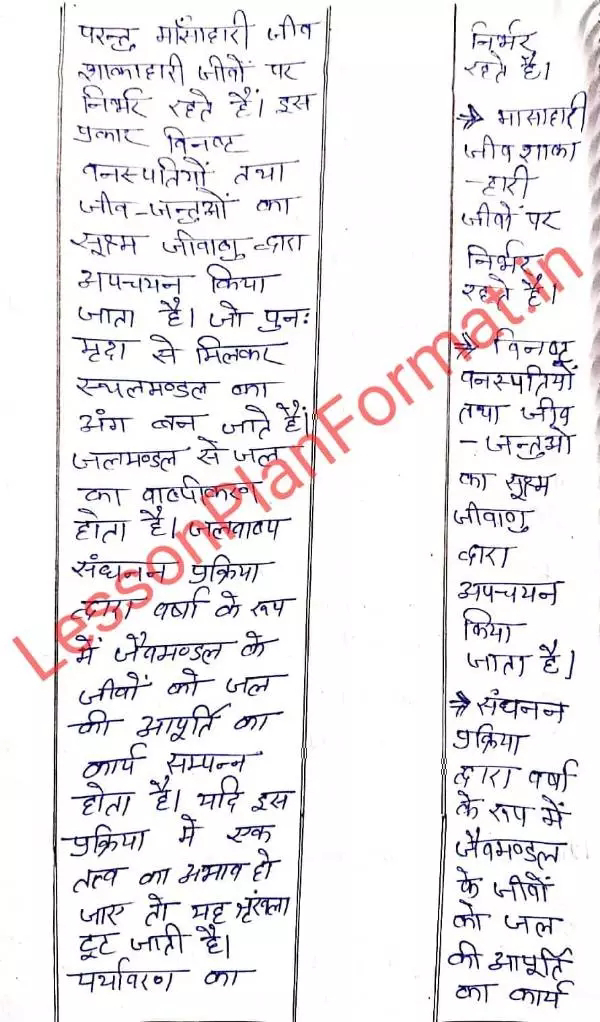 परन्तु माँसाहारी जीव
शाकाहारी जीवों पर
निर्भर रहते हैं। इस
प्रकार विनष्ट
वनस्पतियों तथा
जीव-जन्तुओं का
सूक्ष्म जीवाणु द्वारा
अपचयन किया
जाता है। जो पुनः
मृदा से मिलकर
स्थलमण्डल का
अंग बन जाते हैं।
जलमण्डल से जल
का वाष्पीकरण
होता है। जलवाष्प
संघनन प्रक्रिया
द्वारा वर्षा के रूप
में जैवमण्डल के
जीवों को जल
की आपूर्ति का
कार्य सम्पन्न
होता है। यदि इस
प्रक्रिया में एक
तत्व का अभाव हो
जाए तो यह श्रृंखला
टूट जाती है।
पर्यावरण का
निर्भर
रहते है।
→ मासाहारी
जीव शाका
-हारी
जीवों पर
निर्भर
रहते है।
→ विनष्ट
वनस्पतियों
तथा जीव
-जन्तुओ
का सूक्ष्म
जीवाणु
द्वारा
अपचयन
किया
जाता है।
→ संघनन
प्रक्रिया
द्वारा वर्षा
के रूप में
जैवमण्डल
के जीवों
को जल
की आपूर्ति
का कार्य
LessonPlanFormat.in